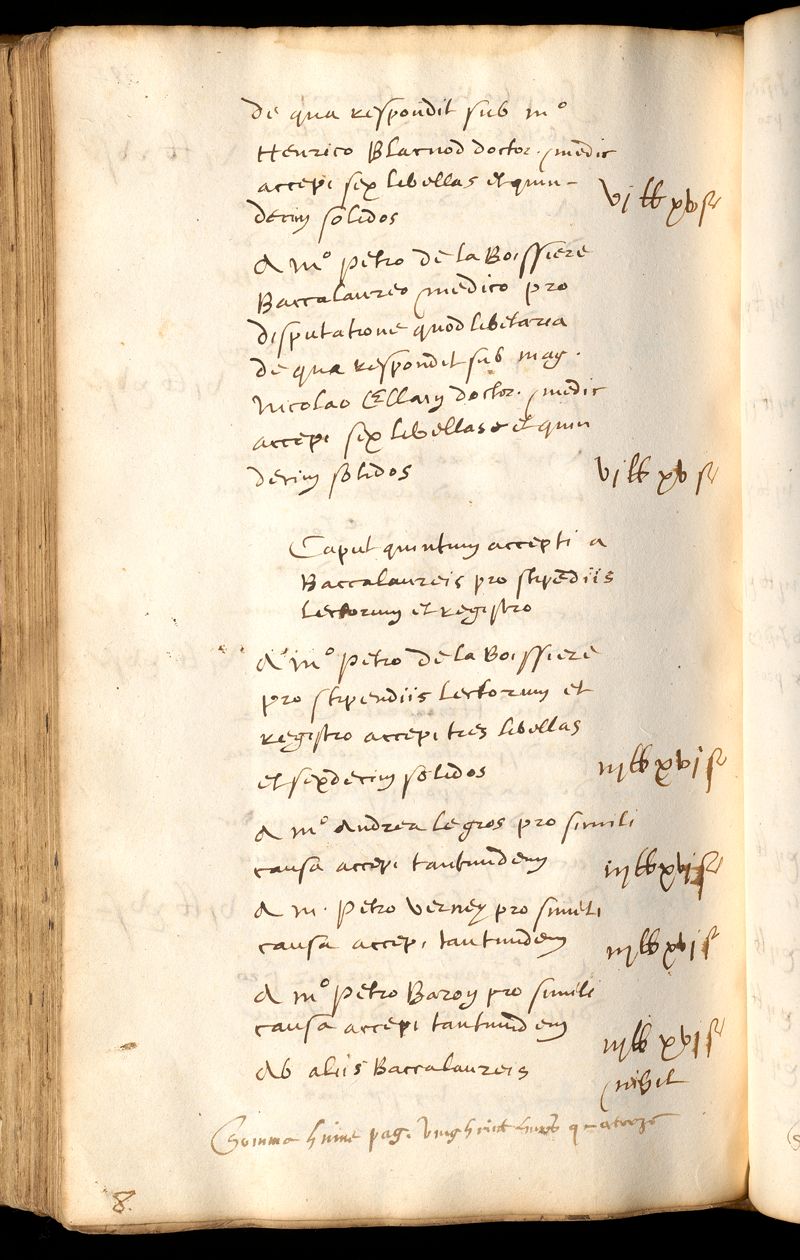 de qua respondit sub m°
Henrico Blacuod doctor. medic
accepi sex libellas et quin-
decim solidos vj ll xv s
A m° Petro de la Boissiere
Baccalaureo medico pro
disputatione quodlibetaria
de qua respondit sub mag.
Nicolao Ellain doctor. medic
accepi sex libellas et quin
decim solidos vj ll xv s
Caput quintum accepti a
Baccalaureis pro stipendiis
Lectorum et registro
A m° Petro de la Boissiere
pro stipendiis Lectorum et
registro accepi tres libellas
et sexdecim solidos iij ll xvj s
A m° Andrea le gros pro simili
causa accepi tantundem iij ll xvj s
A m. Petro Verney pro simili
causa accepi tantundem iij ll xvj s
A m° Petro Baron pro simili
causa accepi tantundem iij ll xvj s
Ab aliis Baccalaureis nihil
Somma huius pag. vingt huict livres quatorze
8.